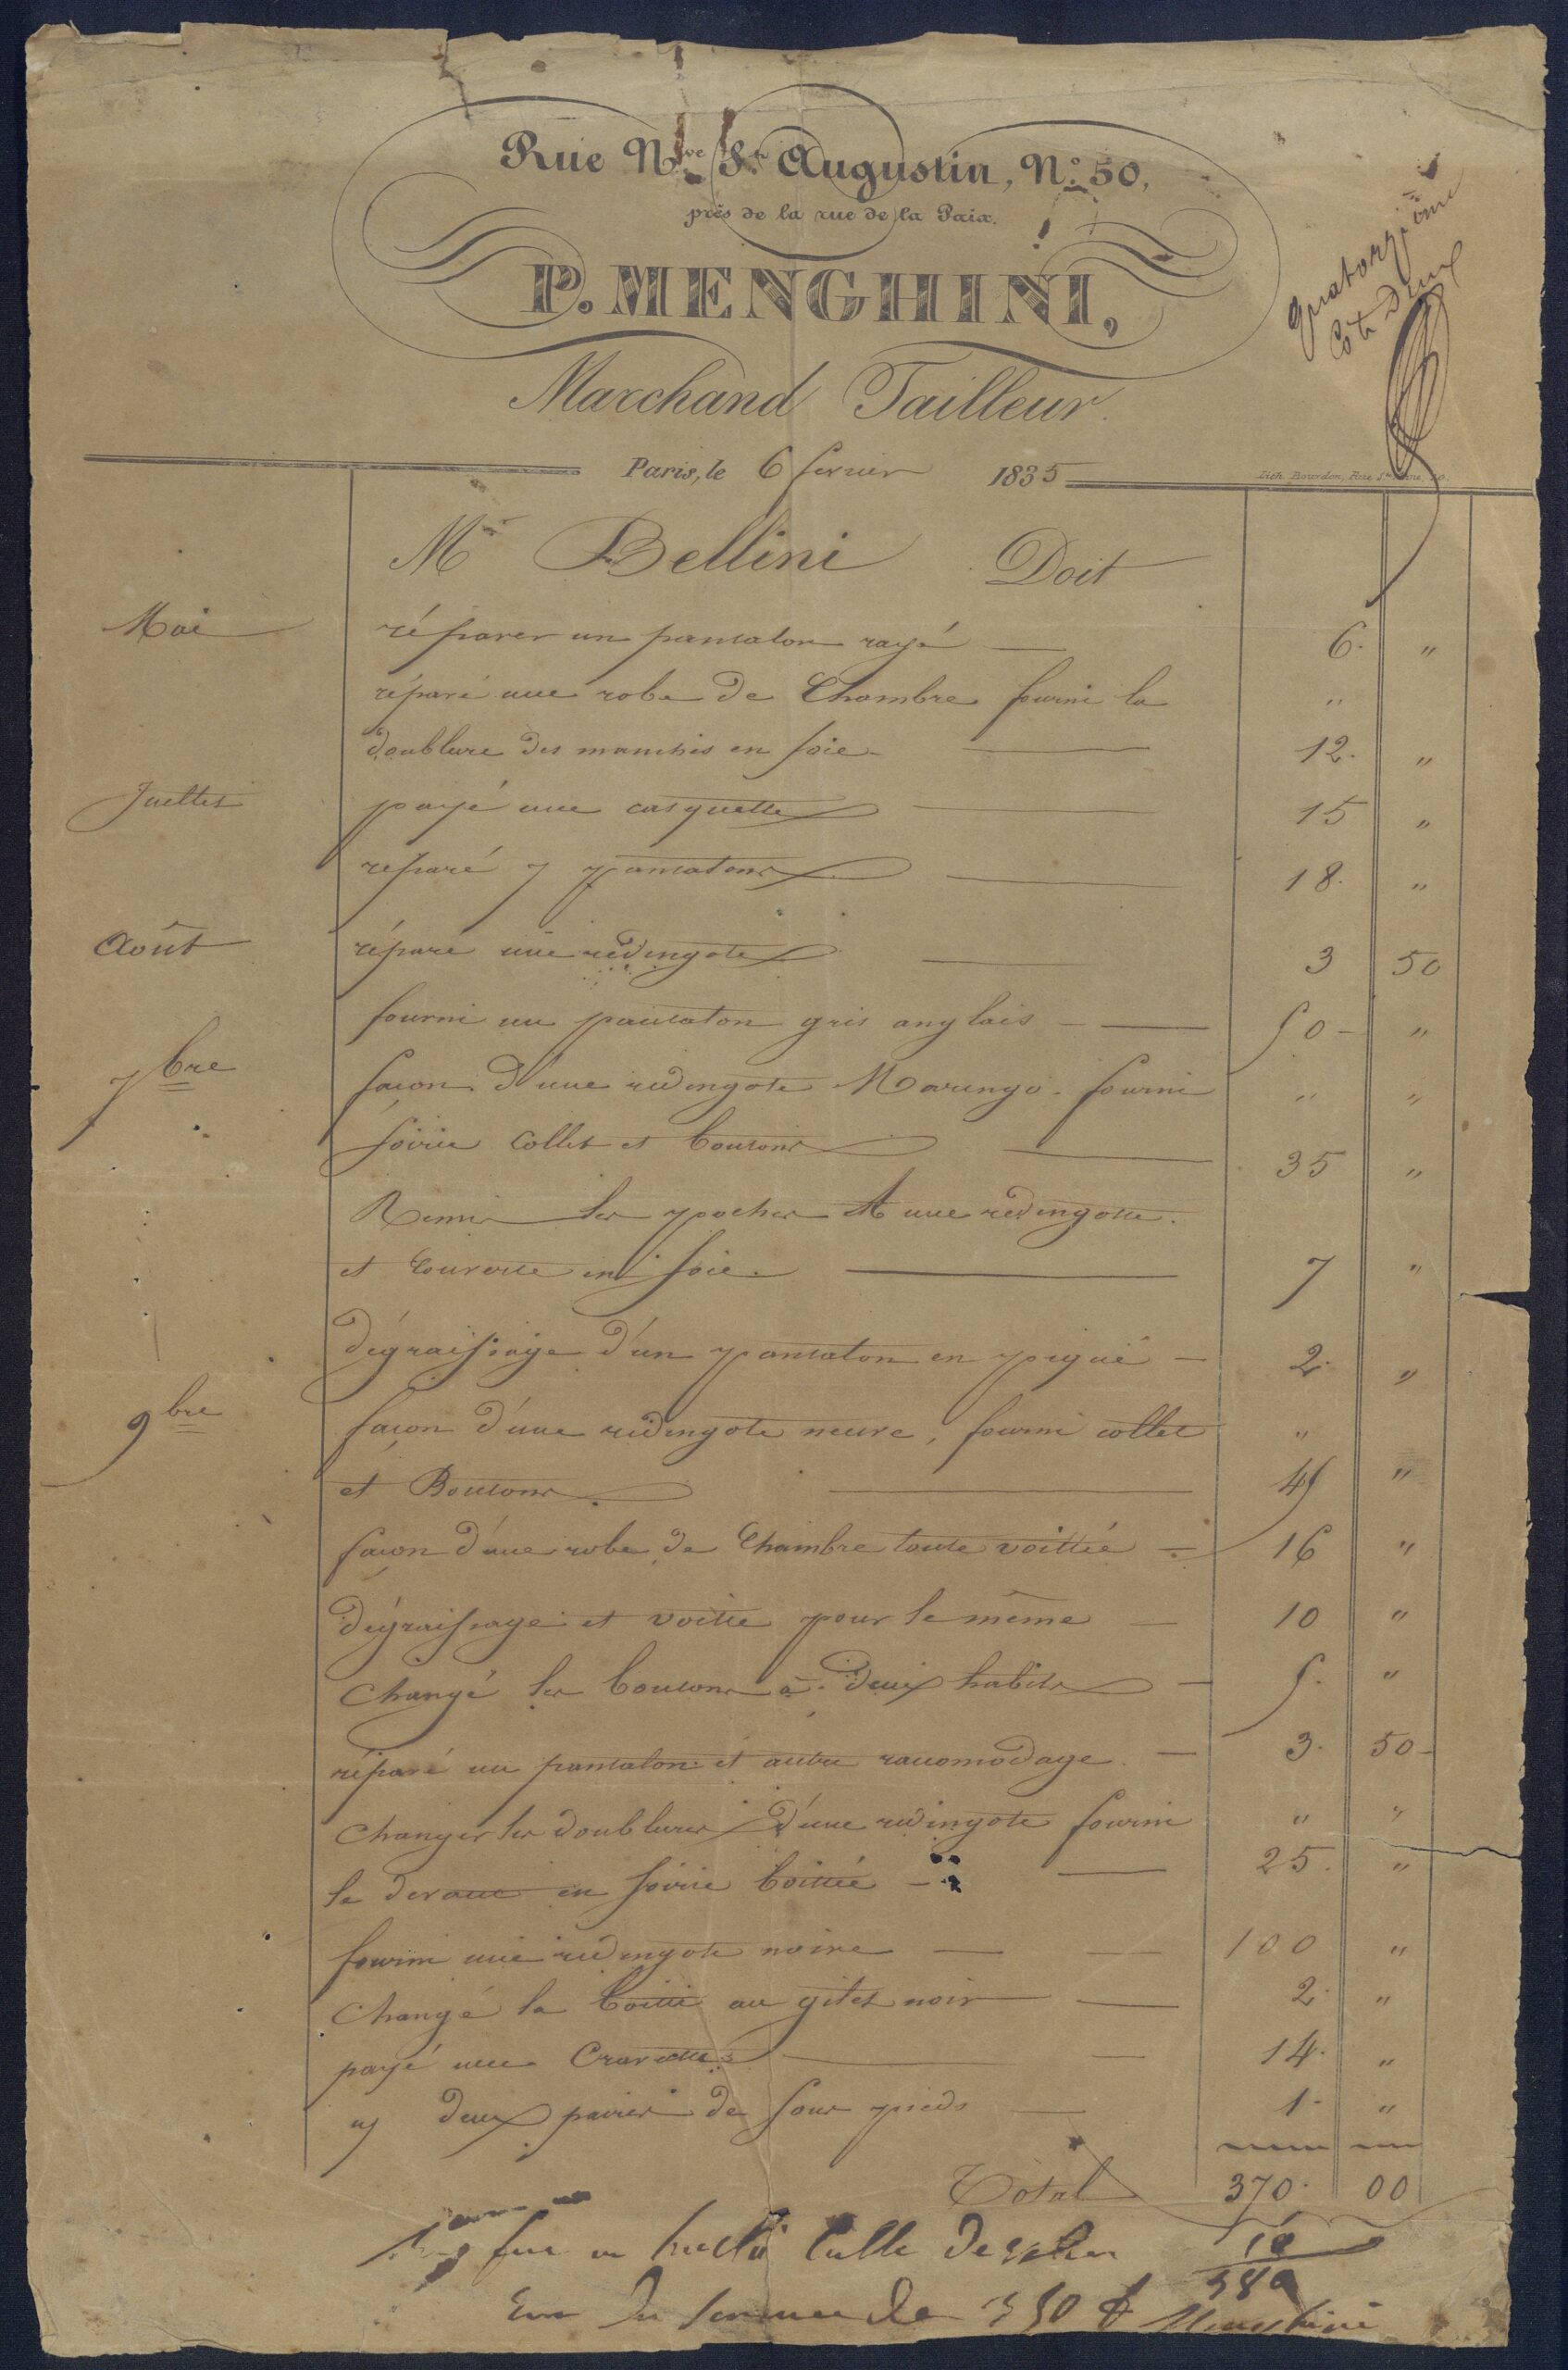 Rue Nve St Augustin, No 50,
près de la rue de la Paix.
P. MENGHINI,
Marchand Tailleur.
quatorzième
Cote Deux
Paris, le 6 fevrier 1835
Lith. Bourdon, Rue Ste Anne, 
Mr Bellini Doit
Mai réparer un pantalon rayé — 6. "
réparé une robe de Chambre fourni la "
doublure des manches en soie — 12. "
Juellet payé une casquette — 15 "
reparé 7 pantalons — 18. "
Août réparé une redingote — 3 50
fourni un pantalon gris anglais — 50 - "
7bre façon d'une redingote Marengo. fourni " "
soirie Collet et boutons — 35 "
Remis les poches A une redingotte.
et couverte en soie. — 7 "
dégraissage d'un pantalon en piqué — 2. "
9bre façon d'une redingote neuve, fourni collet "
et Boutons — 45 "
façon d'une robe de Chambre toute — 16 "
dégraissage et pour le même — 10 "
Changé les boutons à deux habits — 5. "
réparé un pantalon et autre racomodage. — 3. 50 -
Changer les doublures d'une redingote fourni " "
le devant en soirie — 25. "
fourni une redingote noire — 100 "
Changé la au gilet noir — 2. "
payé une Cravatte — 14. "
deux paires de sous pieds — 1 - "
Total 370. 00
10
380
somme de Menghini